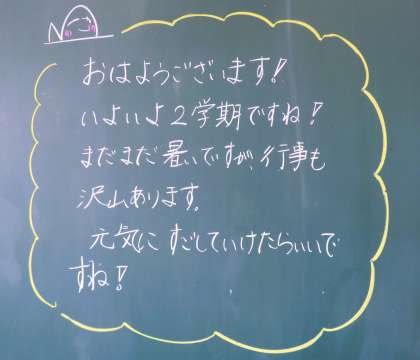 おはようございます!
いよいよ2学期ですね!
まだまだ暑いですが、行事も
沢山あります。
元気にすごしていけたらいいで
すね!